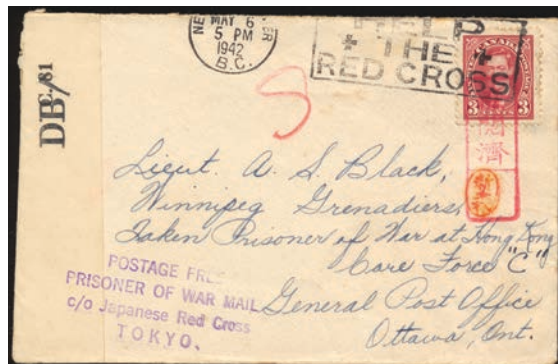 MAY 6
5 PM
1942
B.C.
HELP
THE
RED CROSS
CANADA
3 3
DB/C.81
濟
Lieut. A. S. Black,
Winnipeg Grenadiers,
Taken Prisoner of War at Hong Kong
Care Force "C"
General Post Office
Ottawa, Ont.
POSTAGE FREE
PRISONER OF WAR MAIL
c/o Japanese Red Cross
TOKYO.